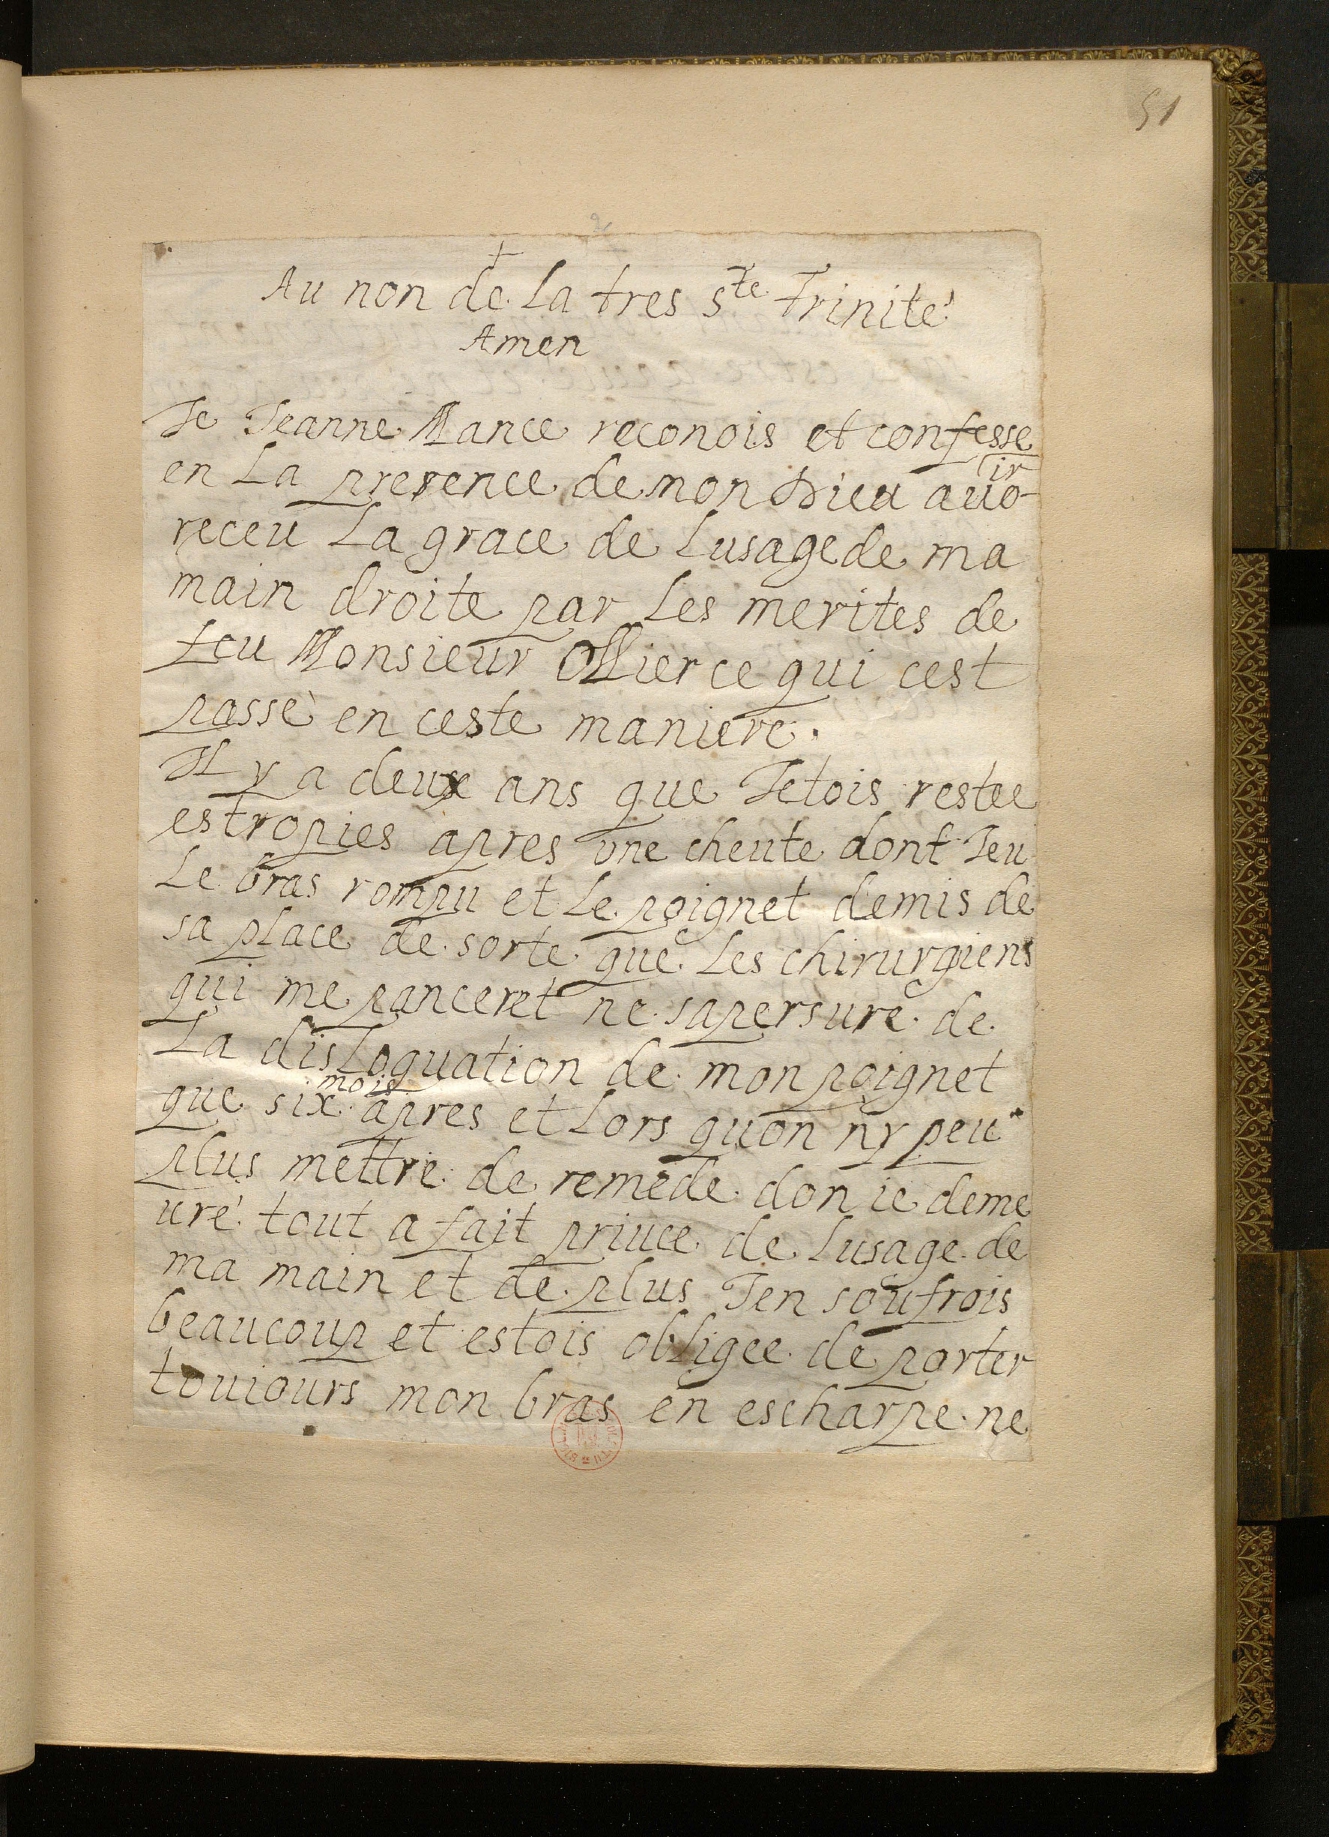 51
Au non de la tres Ste Trinité
Amen
Je Jeanne Mance reconois et confesse
en La presence de mon Dieu auoir
receu La grace de Lusage de ma
main droite par Les merites de
feu Monsieur Ollier ce qui cest
passé en ceste maniere.
Il y a deux ans que Jetois restee
estropies apres vne cheute dont Jeu
Le bras rompu et Le poignet demis de
sa place de sorte que Les chirurgiens
qui me panceret ne sapersure de
La disLoquation de mon poignet
que six mois apres et Lors quon ny peu
plus mettre de remede don ie deme
uré tout a fait priuee de Lusage de
ma main et de plus Jen soufrois
beaucoup et estois obligee de porter
touiours mon bras en escharpe ne